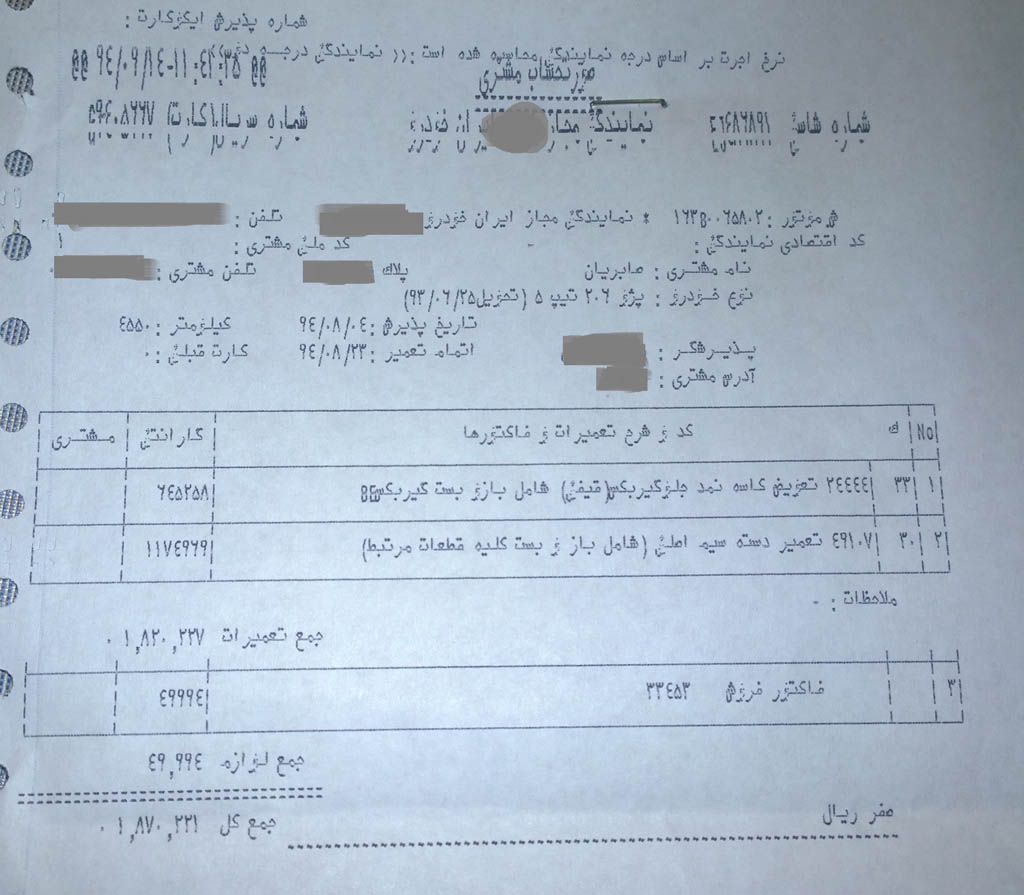 شماره پذیرش ایکزکارت :
نرخ اجرت بر اساس درجه نمایندگی محاسبه شده است :(( نمایندگی درجه دو))
۹۴/۰۹/۱۴-۱۱:۴۲:۳۵
صورتحساب مشتری
شماره شاسی ۴۶۶۸۶۸۹۱ نمایندگی مجاز ایران خودرو شماره سریال(کارت) ۵۹۶۰۸۶۶۷
ش موتور : ۱۶۳B۰۰۶۵۸۰۲ * نمایندگی مجاز ایران خودرو تلفن :
کد اقتصادی نمایندگی : - کد ملی مشتری : ۱
نام مشتری : صابریان پلاک تلفن مشتری :
نوع خودرو : پژو ۲۰۶ تیپ ۵ (تحویل۹۳/۰۶/۲۵)
تاریخ پذیرش : ۹۴/۰۸/۰۴ کیلومتر : ۴۵۵۰
پذیرشگر : اتمام تعمیر : ۹۴/۰۸/۲۳ کارت قبلی : ۰
آدرس مشتری :
No ک کد و شرح تعمیرات و فاکتورها گارانتی مشتری
۱ ۳۳ ۲۴۴۴۴ تعویض کاسه نمد جلوگیربکس(قیفی) شامل بازو بست گیربکس ۶۴۵۲۵۸
۲ ۳۰ ۴۹۱۰۷ تعمیر دسته سیم اصلی (شامل باز و بست کلیه قطعات مرتبط) ۱۱۷۴۹۶۹
ملاحظات : -
جمع تعمیرات ۱,۸۲۰,۲۲۷ ۰
۳ فاکتور فروش ۳۳۴۵۳ ۴۹۹۹۴
جمع لوازم ۴۹,۹۹۴
جمع کل ۱,۸۷۰,۲۲۱ ۰
صفر ریال